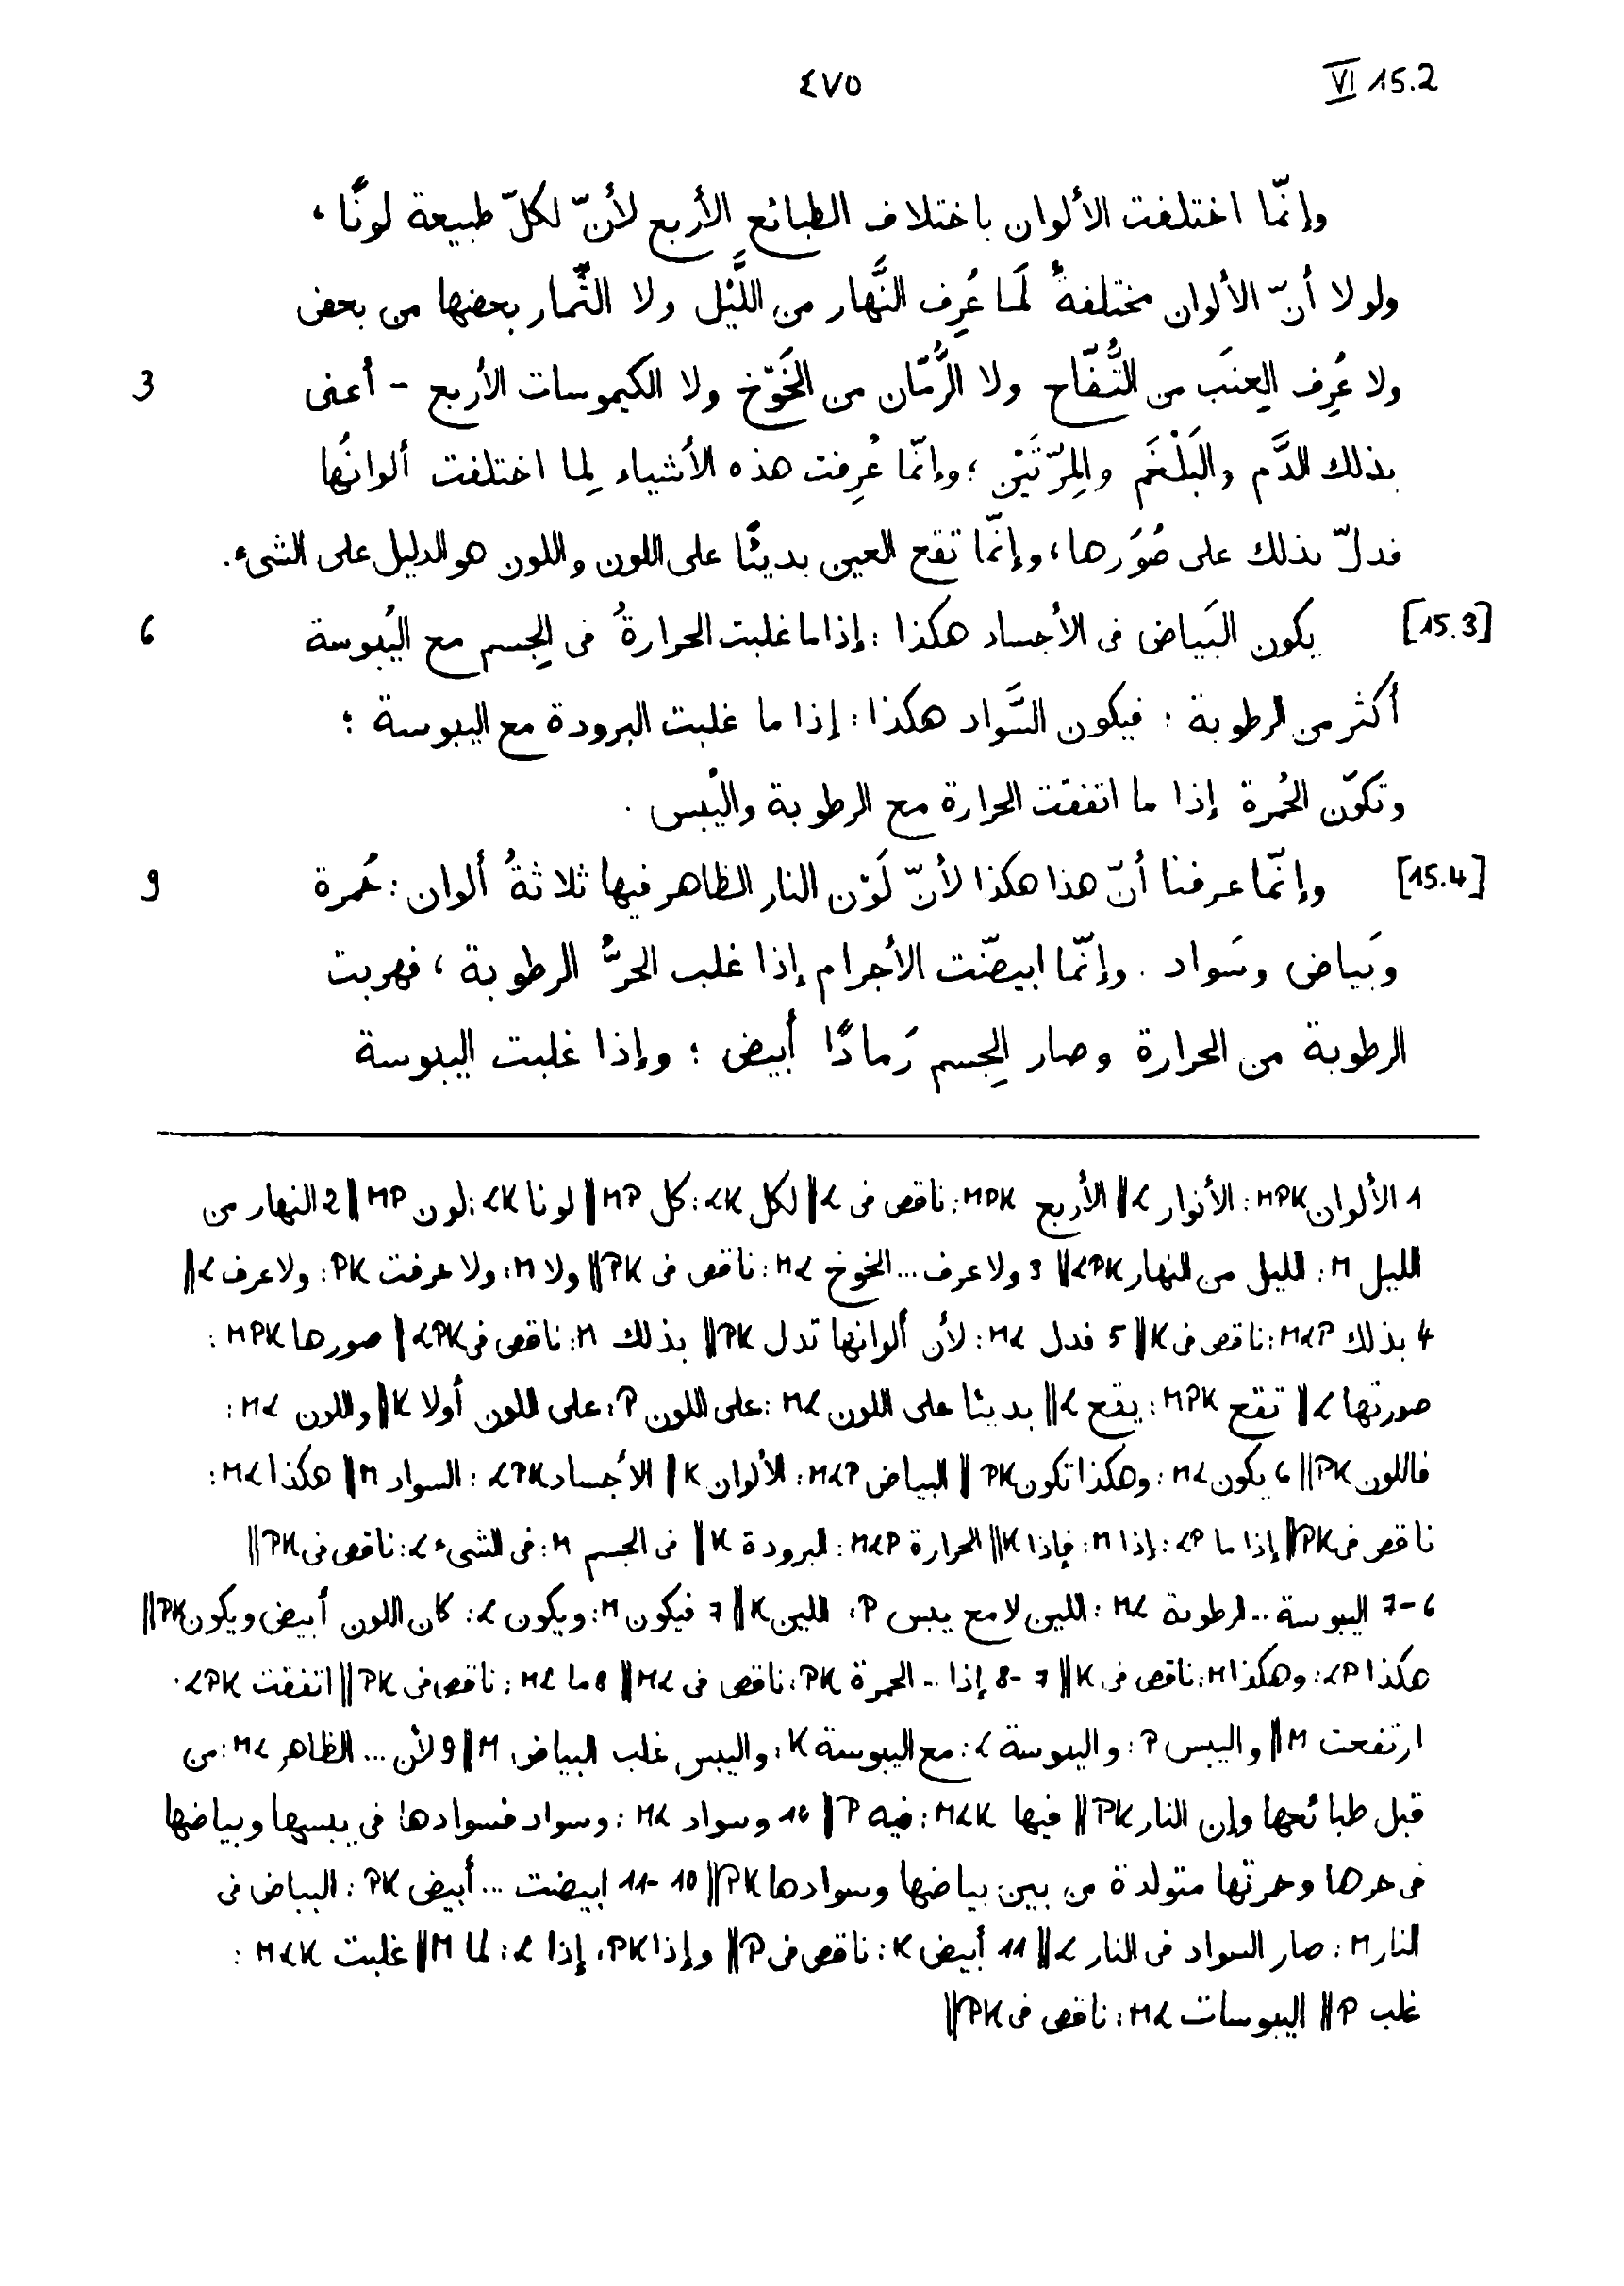 ٤٧٥ VI 15.2
وإنّما اختلفت الألوان باختلاف الطبائع الأربع لأنّ لكلّ طبيعة لونًا،
ولولا أنّ الألوان مختلفةٌ لَما عُرِف النَّهار من اللَّيْل ولا الثِّمار بعضها من بعض
3 ولا عُرِف العِنَب من التُّفّاح ولا الرُّمّان من الخَوْخ ولا الكيموسات الأربع - أعنى
بذلك الدَّم والبَلْغَم والمِرّتَيْن؛ وإنّما عُرِفت هذه الأشياء لِما اختلفت ألوانُها
فدلّ بذلك على صُوَرها، وإنّما تقع العين بديئًا على اللون واللون هو الدليل على الشىء.
[15.3] يكون البَياض فى الأجساد هكذا: إذا ما غلبت الحرارةُ فى الجِسم مع اليُبوسة 6
أكثر من الرطوبة؛ فيكون السَّواد هكذا: إذا ما غلبت البرودة مع اليبوسة؛
وتكوّن الحُمرة إذا ما اتفقت الحرارة مع الرطوبة واليُبس.
[15.4] وإنّما عرفنا أنّ هذا هكذا لأنّ لَوْن النار الظاهر فيها ثلاثةُ ألوان: حُمرة 9
وبَياض وسَواد. وإنّما ابيضّت الأجرام إذا غلب الحرُّ الرطوبة، فهربت
الرطوبة من الحرارة وصار الجِسم رَمادًا أبيض؛ وإذا غلبت اليبوسة
1 الألوان MPK: الأنوار L || الأربع MPK: ناقص فى L || لكل LK: كل MP || لونا LK: لون MP || 2 النهار من
الليل M: الليل من النهار LPK || 3 ولا عرف... الخوخ ML: ناقص فى PK || ولا M: ولا عرفت PK: ولا عرف L ||
4 بذلك MLP: ناقص فى K || 5 فدل ML: لأن ألوانها تدل PK || بذلك M: ناقص فى LPK || صورها MPK:
صورتها L || تقع MPK: يقع L || بديئا على اللون ML: على اللون P: على اللون أولا K || واللون ML:
فاللون PK || 6 يكون ML: وهكذا تكون PK || البياض MLP: الألوان K || الأجساد LPK: السواد M || هكذا ML:
ناقص فى PK || إذا ما LP: إذا M: فإذا K || الحرارة MLP: البرودة K || فى الجسم M: فى الشىء L: ناقص فى PK ||
6-7 اليبوسة... الرطوبة ML: اللين لا مع يبس P: اللين K || 7 فيكون M: ويكون L: كان اللون أبيض ويكون PK ||
هكذا LP: وهكذا M: ناقص فى K || 7-8 إذا... الحمرة PK: ناقص فى ML || 8 ما ML: ناقص فى PK || اتفقت LPK:
ارتفعت M || واليبس P: واليبوسة L: مع اليبوسة K: واليبس غلب البياض M || 9 لأن... الظاهر ML: من
قبل طبائعها وإن النار PK || فيها MLK: فيه P || 10 وسواد ML: وسواد فسوادها فى يبسها وبياضها
فى حرها وحمرتها متولدة من بين بياضها وسوادها PK || 10-11 ابيضت... أبيض PK: البياض فى
النار M: صار السواد فى النار L || 11 أبيض K: ناقص فى P || وإذا PK: إذا L: لما M || غلبت MLK:
غلب P || اليبوسات ML: ناقص فى PK ||